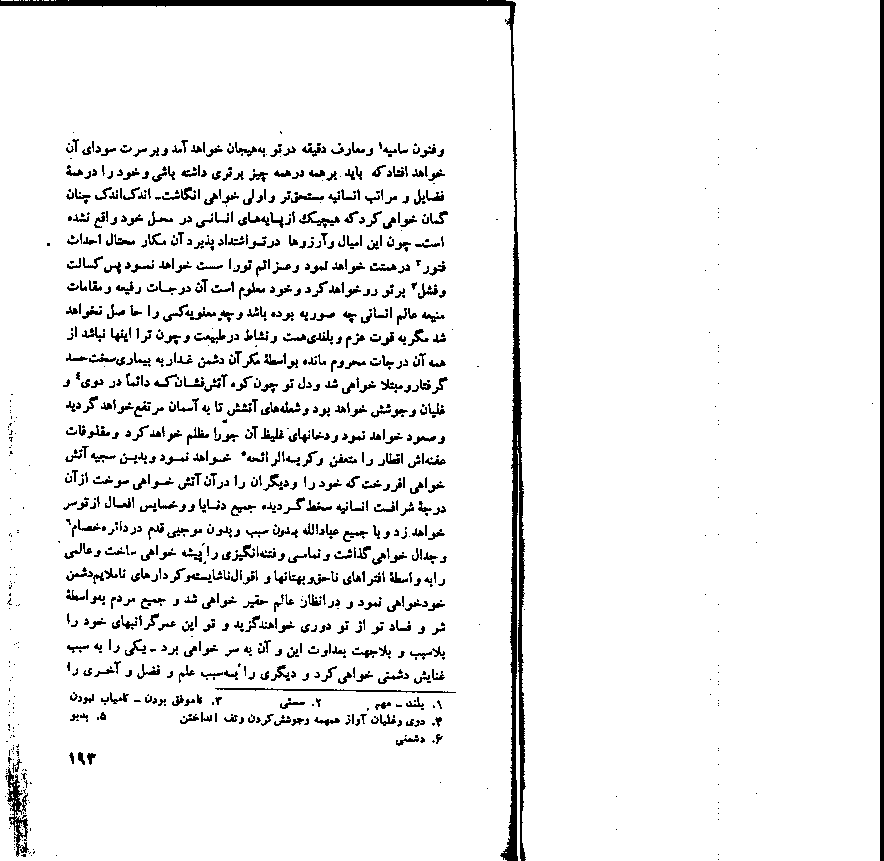 وفنون سامیه۱ ومعارف دقیقه درتو به‌هیجان خواهد آمد وبرسرت سودای آن
خواهد افتاد که باید برهمه درهمه چیز برتری داشته باشی وخود را درهمهٔ
فضایل و مراتب انسانیه مستحق‌تر واولی خواهی انگاشت ـ اندک‌اندک چنان
گمان خواهی‌کرد که هیچیک ازپایه‌های انسانی در محل خود واقع نشده
است ـ چون این امیال وآرزوها درتو اشتداد پذیرد آن مکار محتال احداث
فتور۲ درهمتت خواهد نمود وعزائم تورا سست خواهد نمود پس کسالت
وفشل۳ برتو رو خواهد کرد وخود معلوم است آن درجات رفیعه و مقامات
منیعه عالم انسانی چه صوریه بوده باشد وچه معنویه کسی را حاصل نخواهد
شد مگر به قوت عزم و بلندی همت ونشاط درطبیعت وچون ترا اینها نباشد از
همه آن درجات محروم مانده بواسطهٔ مکرآن دشمن غدار به بیماری سخت حسد
گرفتارومبتلا خواهی شد ودل تو چون کوه آتش‌فشان که دائماً در دوی۴ و
غلیان وجوشش خواهد بود وشعله‌های آتشش تا به آسمان مرتفع خواهد گردید
وصعود خواهد نمود ودخانهای غلیظ آن جورا مظلم خواهد کرد ومقذوفات
عفنه‌اش اقطار را متعفن وکریه‌الرائحه۵ خواهد نمود وبدین سجیه آتش
خواهی افروخت که خود را ودیگران را درآن آتش خواهی سوخت ازآن
درجهٔ شرافت انسانیه سخط گردیده جمیع دنایا ووخسایس افعال ازتوسر
خواهد زد وبا جمیع عبادالله بدون سبب وبدون موجبی قدم دردائره خصام۶
وجدال خواهی گذاشت ونمامی وفتنه‌انگیزی را پیشه خواهی ساخت وعالمی
را به واسطهٔ افتراهای ناحق وبهتانها و اقوال ناشایسته وکردارهای ناملایم دشمن
خود خواهی نمود و درانظان عالم حقیر خواهی شد و جمیع مردم بواسطهٔ
شر و فساد تو از تو دوری خواهند گزید و تو این عمر گرانبهای خود را
بلاسبب و بلاجهت بعداوت این و آن به سر خواهی برد ـ یکی را به سبب
غنایش دشمنی خواهی کرد و دیگری را به سبب علم و فضل و آخری را
۱. بلند ـ مهم ۲. سستی ۳. ناموفق بودن ـ کامیاب نبودن
۴. دوی وغلیان آواز همهمه وجوشش کردن وتف انداختن ۵. بدبو
۶. دشمنی
۱۹۳